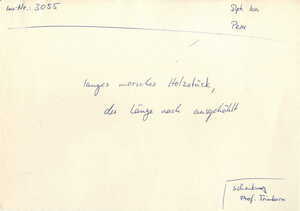 Inv. Nr.: 3055
Peru
langes morsches Holzstück,
der Länge nach ausgehöhlt
Schenkung
Prof. Trimborn